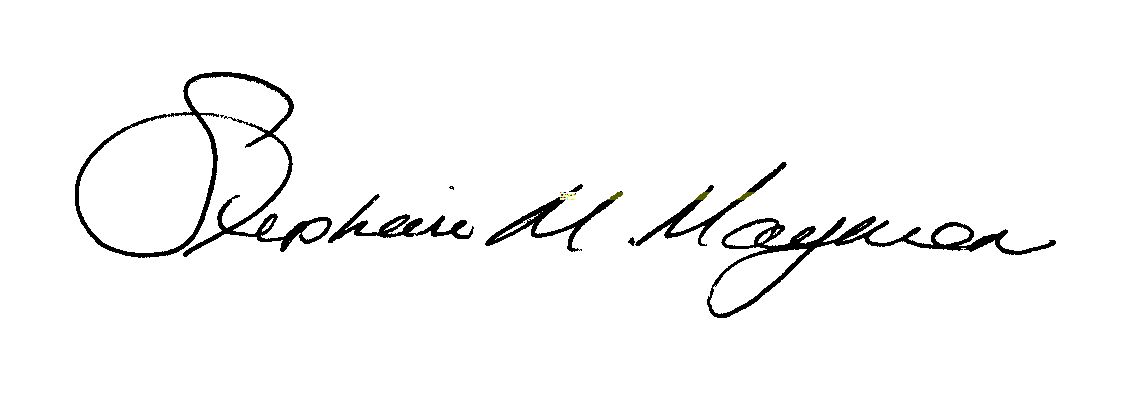 Stephanie M. Mayman